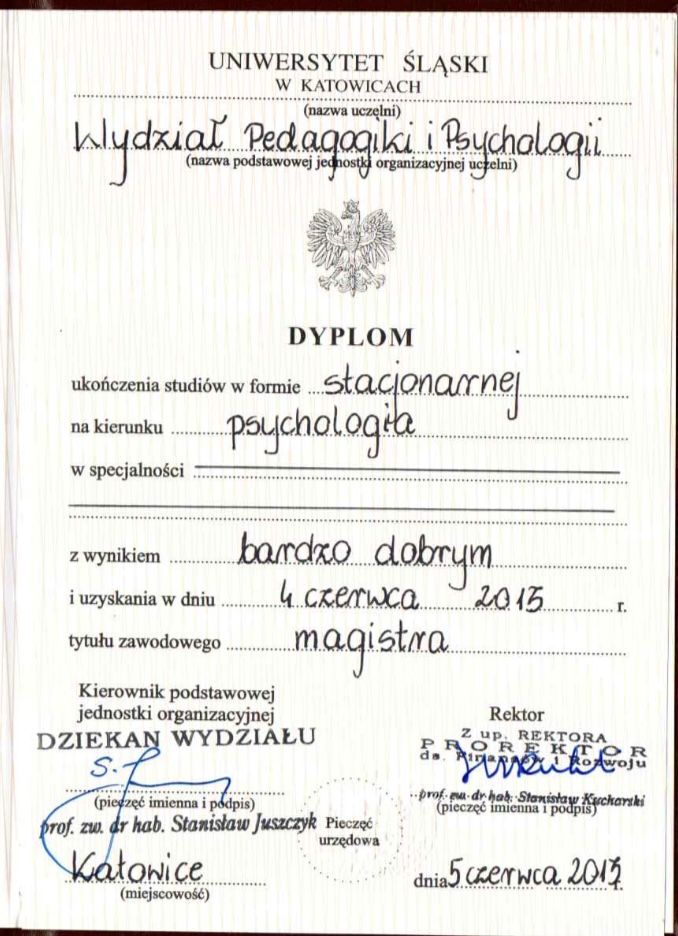 UNIWERSYTET ŚLĄSKI
W KATOWICACH
(nazwa uczelni)
Wydział Pedagogiki i Psychologii
(nazwa podstawowej jednostki organizacyjnej uczelni)
DYPLOM
ukończenia studiów w formie stacjonarnej
na kierunku psychologia
w specjalności
z wynikiem bardzo dobrym
i uzyskania w dniu 4 czerwca 2013 r.
tytułu zawodowego magistra
Kierownik podstawowej
jednostki organizacyjnej
DZIEKAN WYDZIAŁU
(pieczęć imienna i podpis)
prof. zw. dr hab. Stanisław Juszczyk
Katowice
(miejscowość)
Pieczęć
urzędowa
Rektor
Z up. REKTORA
PROREKTOR
ds. Finansów i Rozwoju
prof. zw. dr hab. Stanisław Kucharski
(pieczęć imienna i podpis)
dnia 5 czerwca 2013